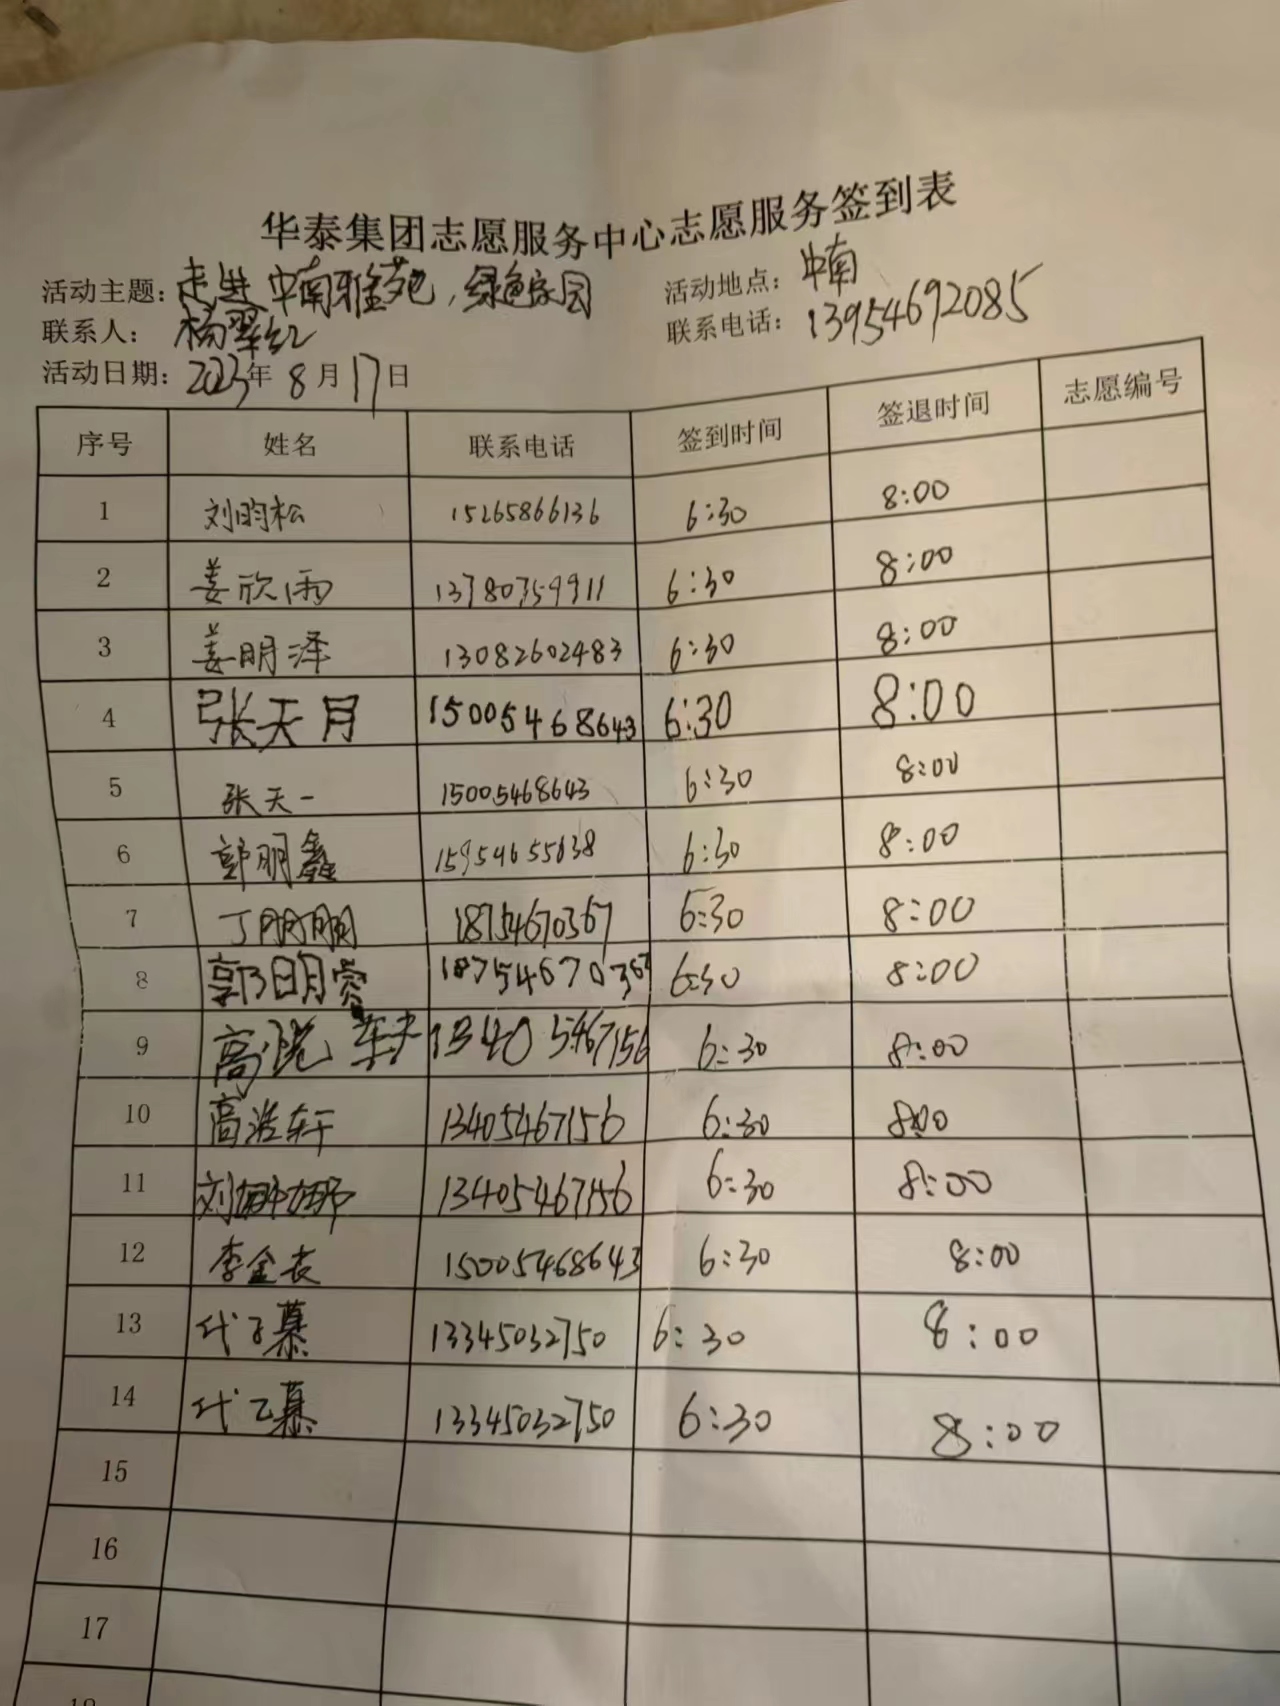 华泰集团志愿服务中心志愿服务签到表
活动主题：走进中南雅苑，绿色家园 活动地点：中南
联系人：杨翠红 联系电话：13954692085
活动日期：2023年8月17日
序号 姓名 联系电话 签到时间 签退时间 志愿编号
1 刘昀松 15265866136 6:30 8:00
2 姜欣雨 13780759911 6:30 8:00
3 姜明泽 13082602483 6:30 8:00
4 张天月 15005468643 6:30 8:00
5 张天一 15005468643 6:30 8:00
6 郭明鑫 15954655638 6:30 8:00
7 丁朋朋 18754670367 6:30 8:00
8 郭明赏 18754670367 6:30 8:00
9 高悦轩 13405467156 6:30 8:00
10 高浩轩 13405467156 6:30 8:00
11 刘娜娜 13405467156 6:30 8:00
12 李金衣 15005468643 6:30 8:00
13 代子慕 13345032750 6:30 8:00
14 代乙慕 13345032750 6:30 8:00
15
16
17